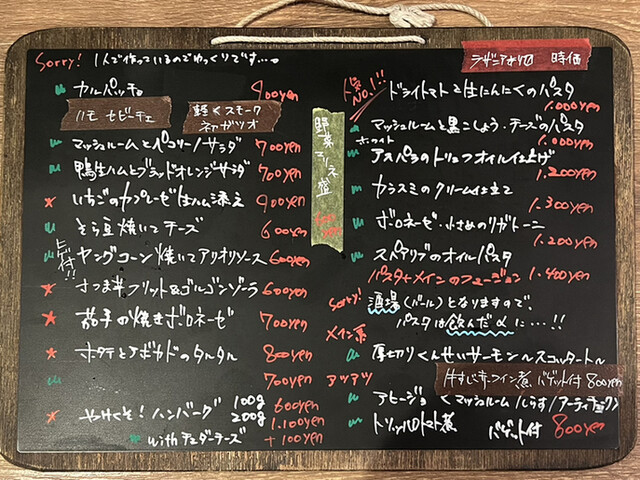 Sorry! 1人で作っているのでゆっくりです…。
カルパッチョ 900yen
ハモ セビーチェ
軽くスモーク
マッシュルームとペコリーノサラダ 700yen
鴨生ハムとブラッドオレンジサラダ 700yen
いちごのカプレーゼ生ハム添え 900yen
そら豆焼いてチーズ 600yen
ヒゲ付!! ヤングコーン焼いてアリオリソース 600yen
さつま芋フリット&ゴルゴンゾーラ 600yen
茄子の焼きボロネーゼ 700yen
ホタテとアボカドのタルタル 800yen
700yen
やっつけくそ!ハンバーグ 100g 600yen
200g 1.100yen
withチェダーチーズ +100yen
野菜マリネ盛
ラザニアあり〼 時価
人気NO.1!! ドライトマトと生にんにくのパスタ 1.000yen
マッシュルームと黒こしょう・チーズのパスタ 1.000yen
ホワイト
アスパラのトリュフオイル仕上げ 1.200yen
カラスミのクリーム仕立て 1.300yen
ボロネーゼ・小さめのリガトーニ 1.200yen
スペアリブのオイルパスタ 1.400yen
パスタ+メインのフュージョン
Sorry! 酒場(バール)となりますので、
パスタは飲んだ〆に…!!
メイン系
厚切りくんせいサーモン
牛すじ赤ワイン煮 バゲット付 800yen
アツアツ
アヒージョ <マッシュルーム/しらす/アーティチョーク>
トリッパトマト煮 バゲット付 800yen